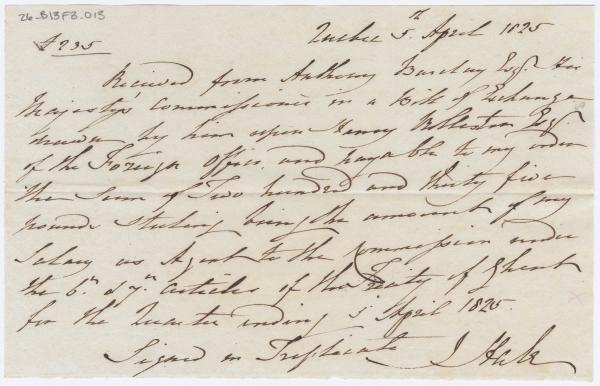 26-B13F3-013
Quebec 5th April 1825
£235
Received from Anthony Barclay Esqr. His
Majesty's Commissioner in a Bill of Exchange
drawn by him upon Henry Esqr.
of the Foreign Office and payable to my order
the Sum of Two hundred and thirty five
pounds sterling being the amount of my
Salary as Agent to the Commission under
the 6th & 7th articles of the Treaty of Ghent
for the Quarter ending 5 April 1825.
Signed in Triplicate J Hale